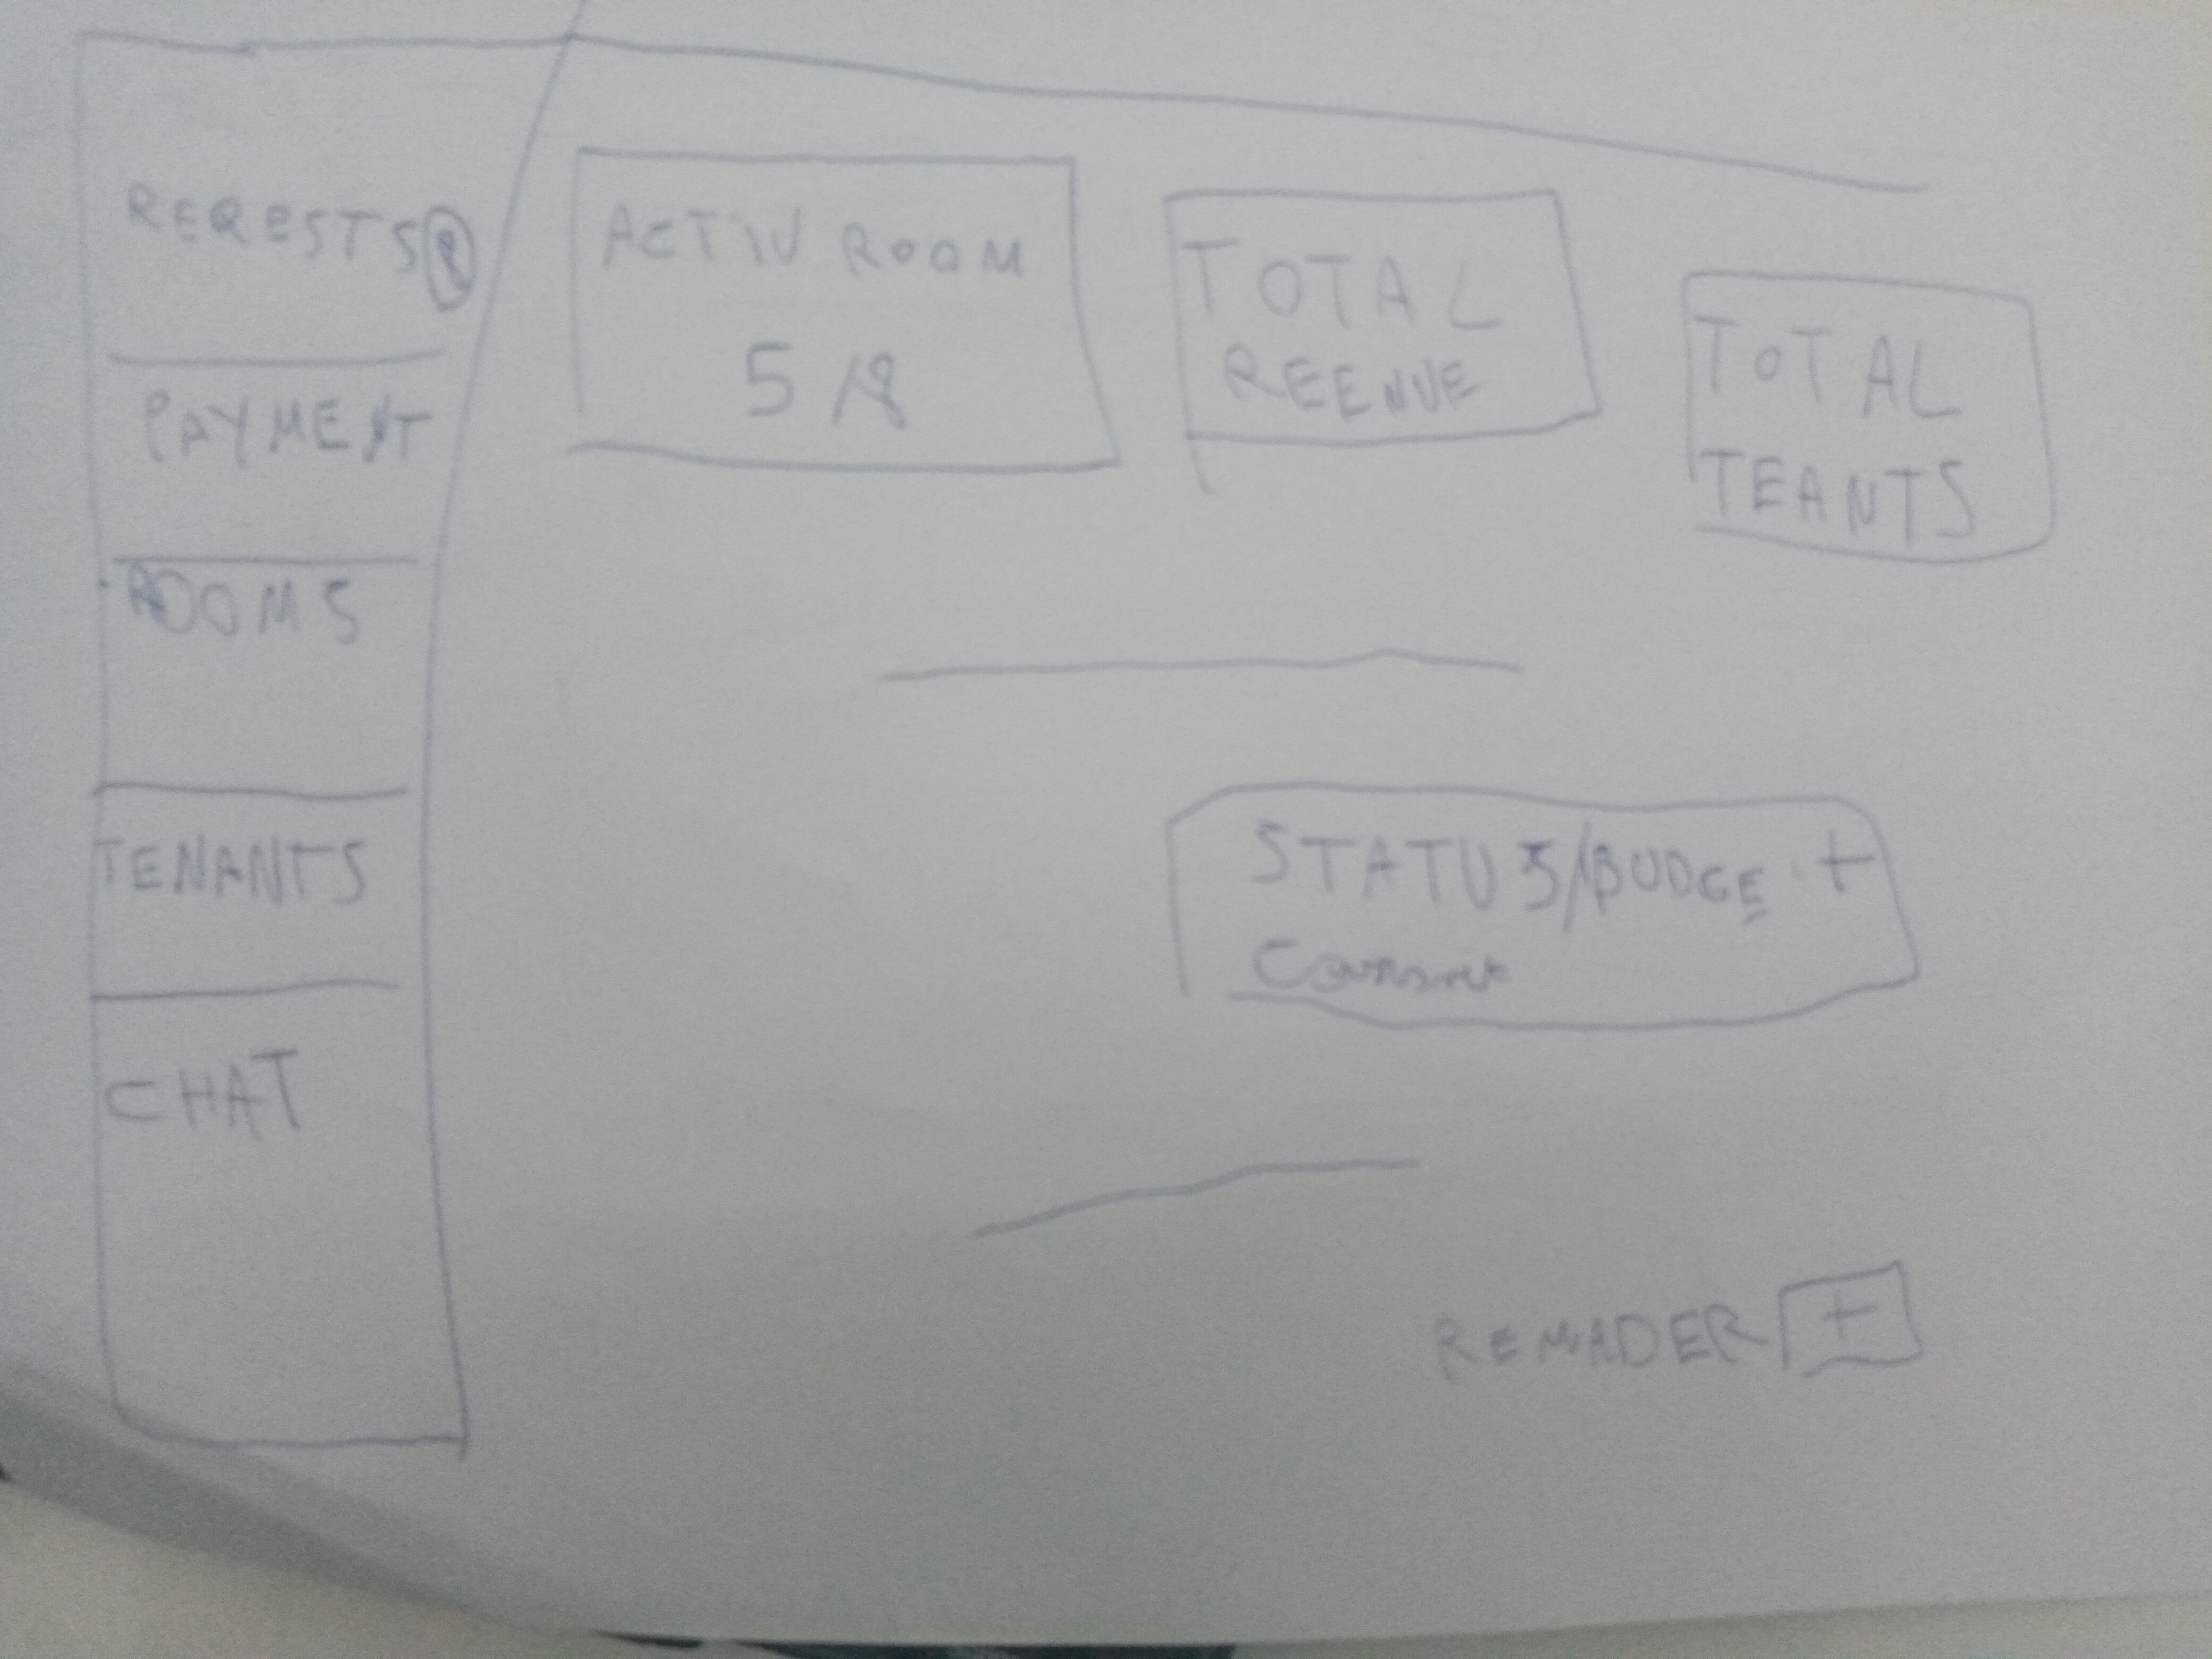 REQESTS 8
PAYMENT
ROOMS
TENANTS
CHAT
ACTIV ROOM
5/8
TOTAL
REENUE
TOTAL
TEANTS
STATUS/BUDGE.+
REMADER +